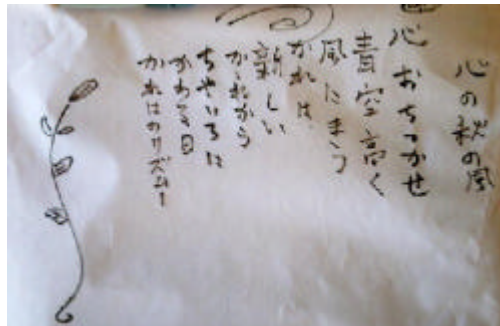 心の秋の風
心おちつかせ
青空高く
風にまう
かれは、
新しい
かれから
ちゃいろは
かわる日
かれはのリズム!